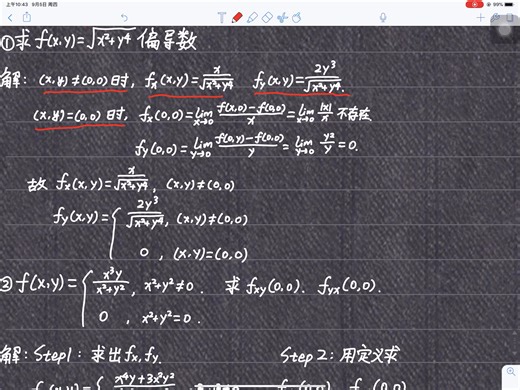 上午10:43 9月5日 周四
99%
①求 f(x,y)=√(x²+y⁴) 偏导数
解: (x,y)≠(0,0)时, fx(x,y)=x/√(x²+y⁴) fy(x,y)=2y³/√(x²+y⁴).
(x,y)=(0,0)时, fx(0,0)=lim x→0 (f(x,0)-f(0,0))/x = lim x→0 |x|/x 不存在
fy(0,0)=lim y→0 (f(0,y)-f(0,0))/y = lim y→0 y²/y = 0.
故 fx(x,y)=x/√(x²+y⁴), (x,y)≠(0,0)
fy(x,y)={ 2y³/√(x²+y⁴), (x,y)≠(0,0)
0, (x,y)=(0,0)
② f(x,y)={ x³y/(x²+y²), x²+y²≠0. 求 fxy(0,0). fyx(0,0).
0, x²+y²=0.
解: Step1: 求出fx,fy. Step2: 用定义求
x⁴y+3x²y²